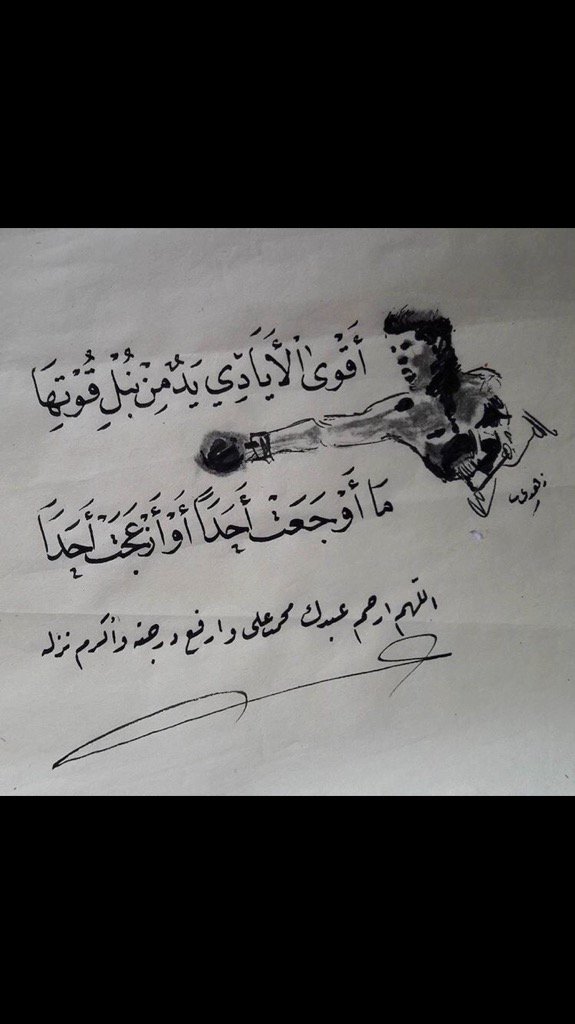 أَقْوىٰ الْأَيَادِي يَدٌ مِنْ نُبْلِ قُوَّتِهَا
مَا أَوْجَعَتْ أَحَدًا أَوْ أَزْعَجَتْ أَحَدَا
اللهم ارحم عبدك محمد علي وارفع درجته وأكرم نزله